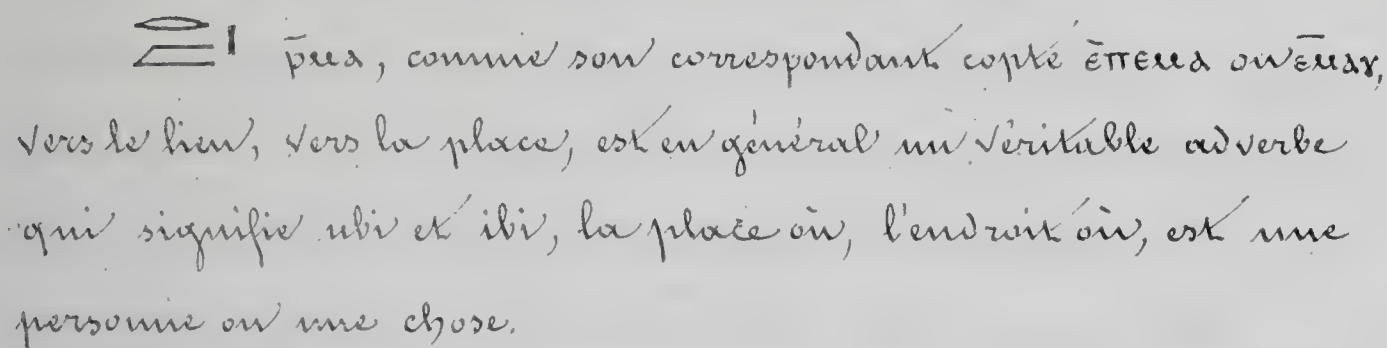 𓂋𓐝𓏤 p̄ⲙⲁ, comme son correspondant copte ⲉ̄ⲡⲉⲙⲁ ou ⲉ̄ⲙⲁⲩ,
vers le lieu, vers la place, est en général un véritable adverbe
qui signifie ubi et ibi, la place où, l'endroit où, est une
personne ou une chose.